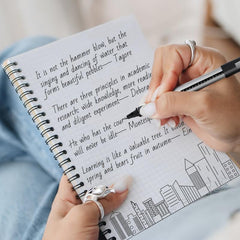 It is not the hammer blow, but the
singing and dancing of water that
forms beautiful pebble— Tagore
There are three principles in academic
research: wide knowledge, more reading
and diligent experiment— Debora
He who has the cour
will never be idle— Montesq
Learning is like a valuable tree. It
spring and bears fruit in autumn—